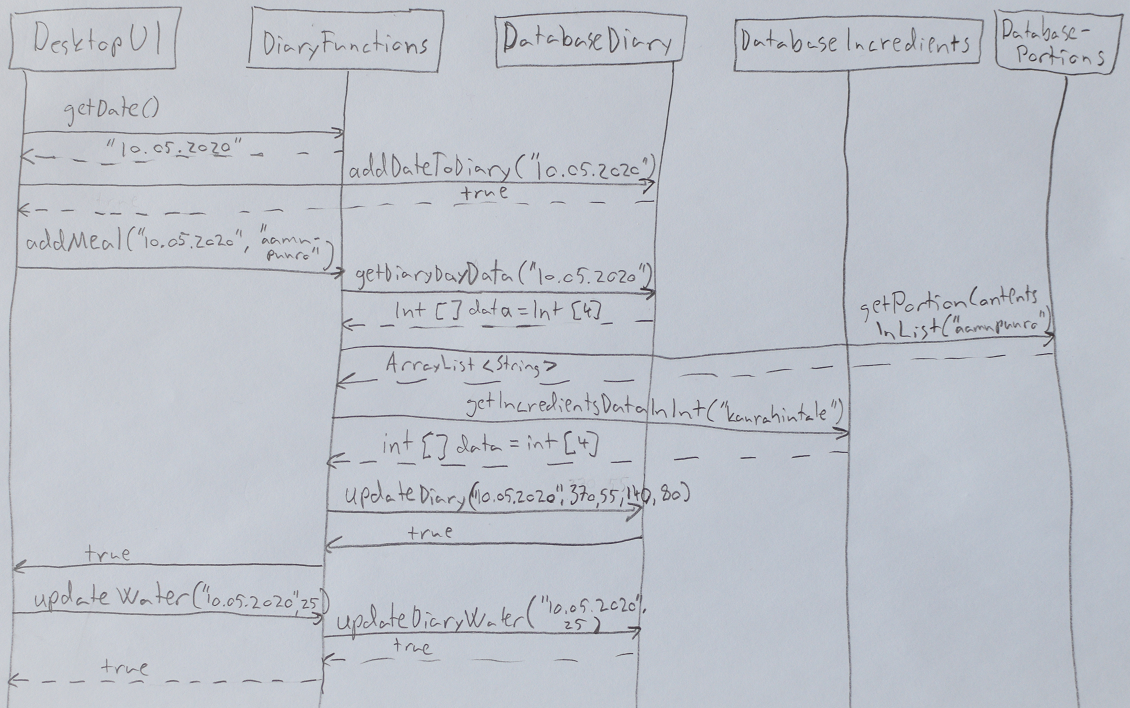 DesktopUI
DiaryFunctions
DatabaseDiary
DatabaseIncredients
Database-
Portions
getDate()
"10.05.2020"
addDateToDiary("10.05.2020")
true
addMeal("10.05.2020", "aamu-
puuro")
getDiaryDayData("10.05.2020")
Int [] data = Int [4]
getPortionContents
InList("aamupuuro")
ArrayList <String>
getIncredientsDataInInt("kaurahiutale")
int [] data = int [4]
updateDiary("10.05.2020", 370, 55, 140, 80)
true
true
updateWater("10.05.2020", 25)
updateDiaryWater("10.05.2020",
25)
true
true